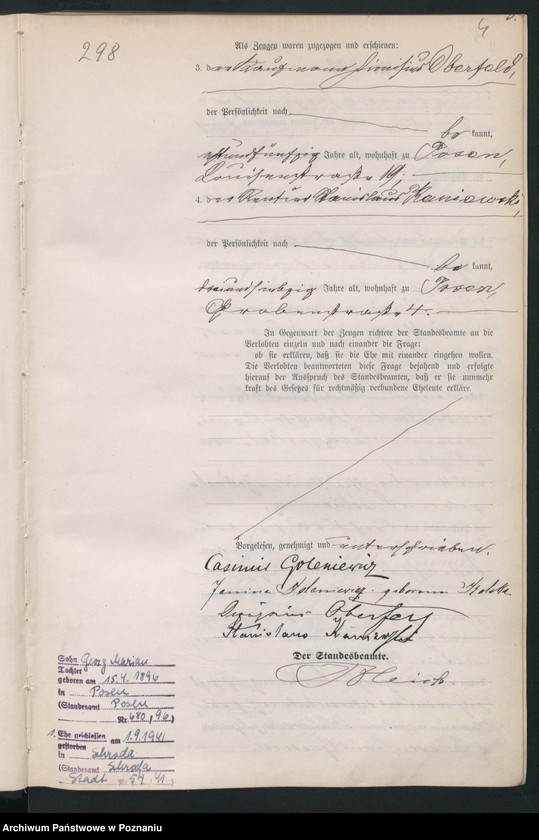 4
298
Als Zeugen waren zugezogen und erschienen:
3. der Kaufmann Dionisius Oberfeld,
der Persönlichkeit nach
be kannt,
undfünfzig Jahre alt, wohnhaft zu Posen,
Louisenstraße 19;
4. der Rentier Stanislaus Kaniewski,
der Persönlichkeit nach
be kannt,
dreiundsiebzig Jahre alt, wohnhaft zu Posen,
Grabenstraße 4.
In Gegenwart der Zeugen richtete der Standesbeamte an die
Verlobten einzeln und nach einander die Frage:
ob sie erklären, daß sie die Ehe mit einander eingehen wollen.
Die Verlobten beantworteten diese Frage bejahend und erfolgte
hierauf der Ausspruch des Standesbeamten, daß er sie nunmehr
kraft des Gesetzes für rechtmäßig verbundene Eheleute erkläre.
Vorgelesen, genehmigt und unterschrieben.
Casimir Goleniewicz
Janina Goleniewicz geborene
Oberfeld
Stanislaus
Der Standesbeamte.
Sohn Georg Marian
Tochter
geboren am 15.4.1896
in Posen
(Standesamt Posen
Nr 680/96)
1. Ehe geschlossen am 1.9.1941
gestorben
in Schroda
(Standesamt Schroda
Stadt 54 41)
Archiwum Państwowe w Poznaniu